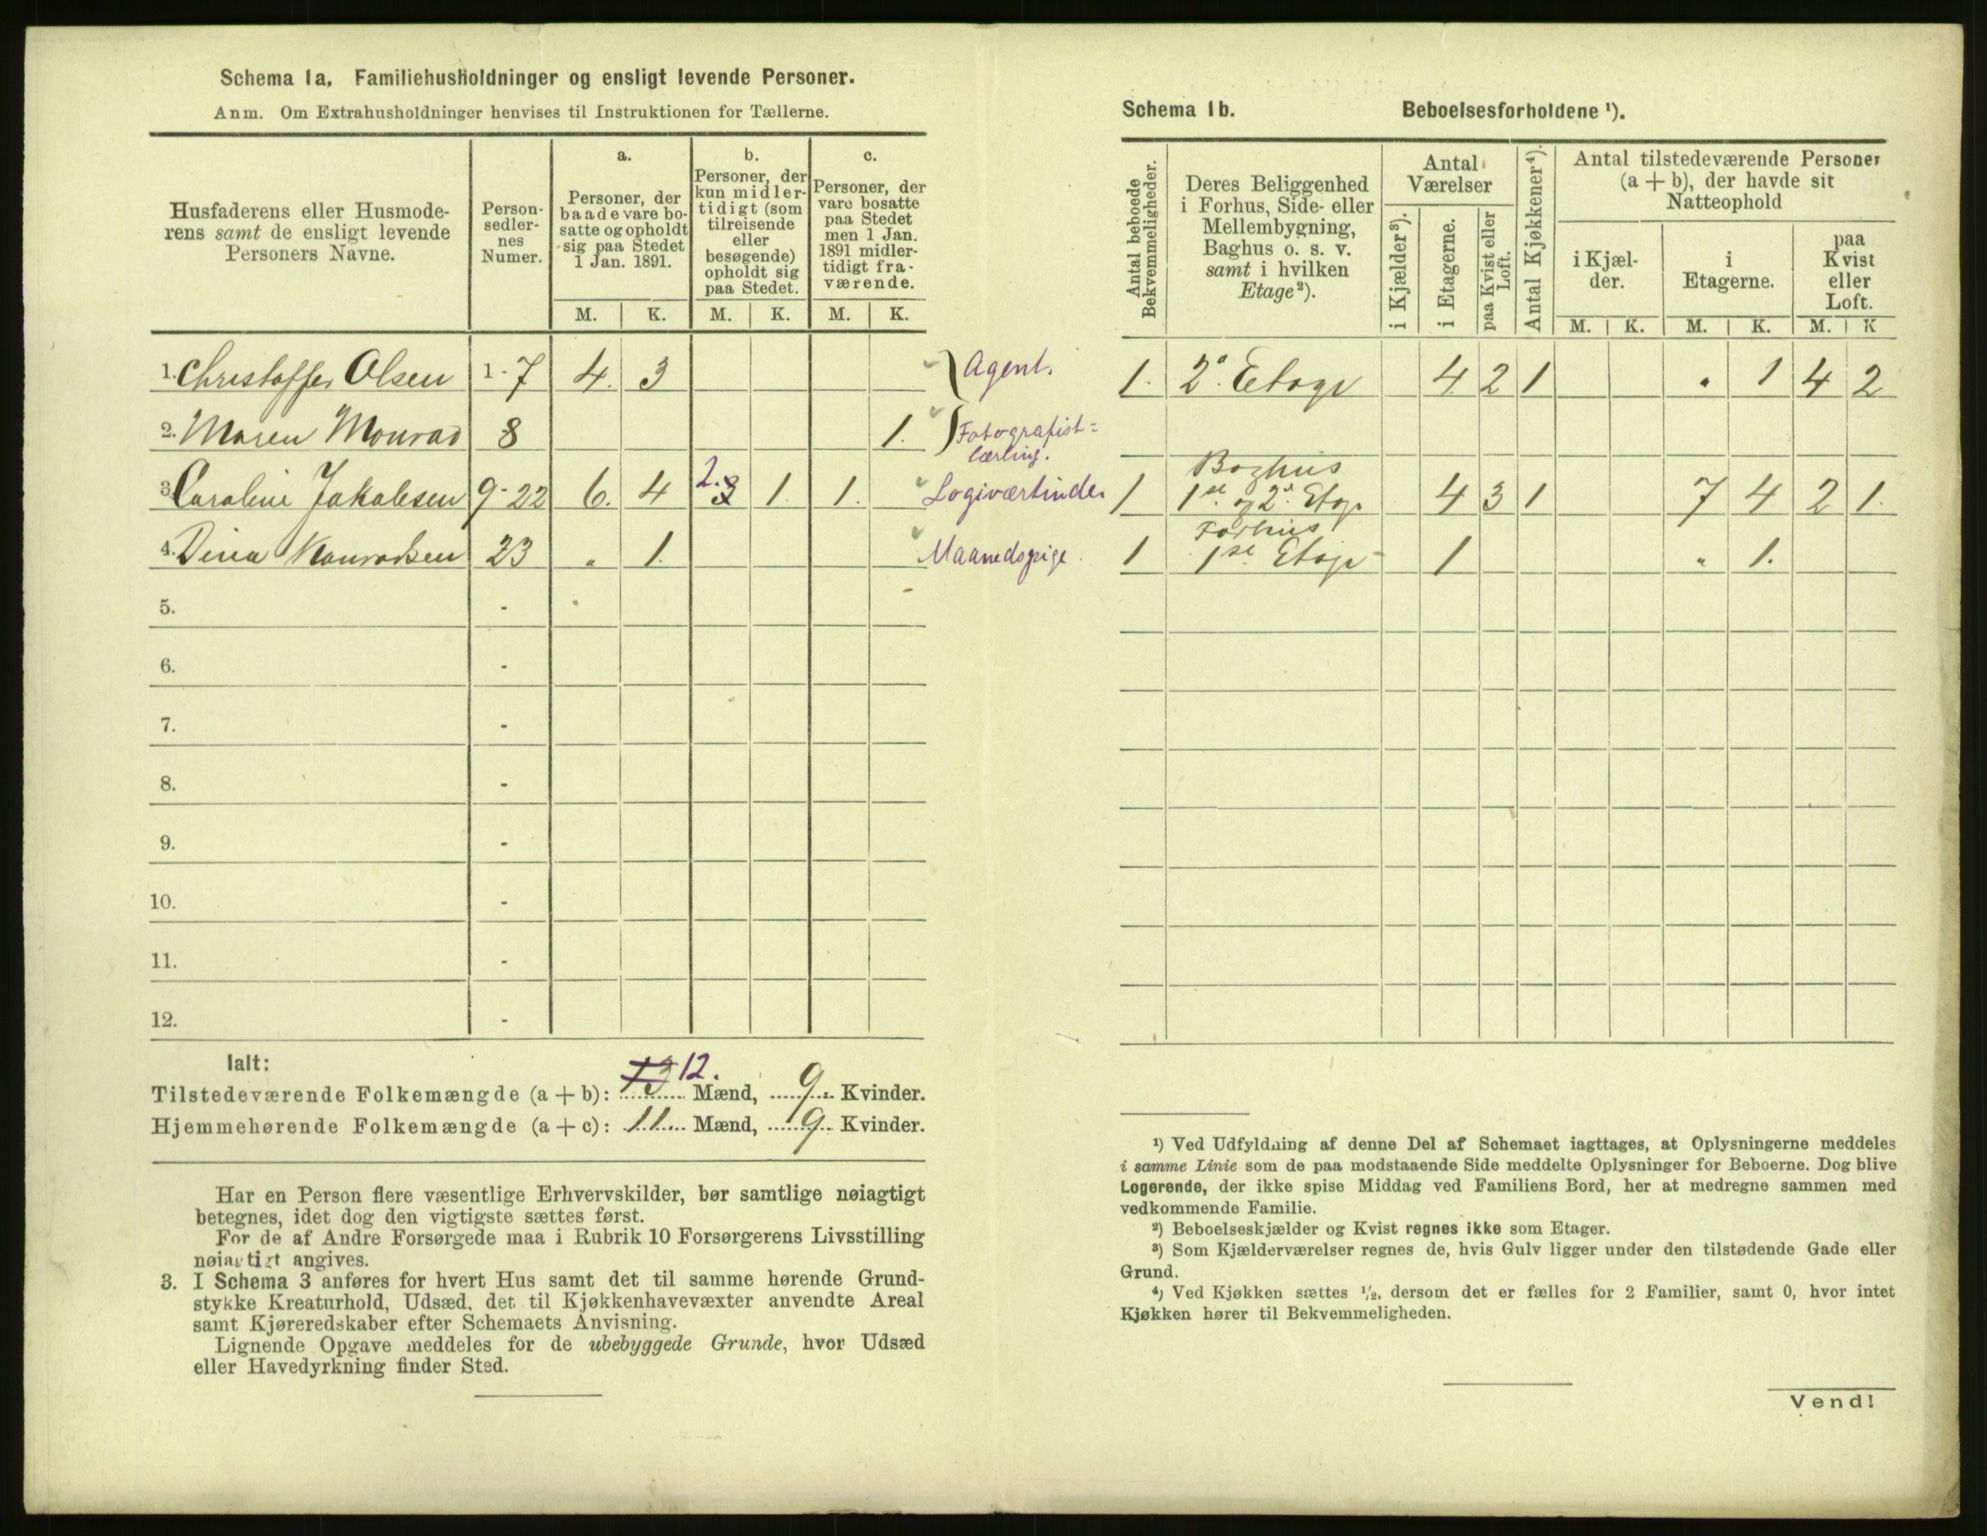 Schema 1a. Familiehusholdninger og ensligt levende Personer.
Anm. Om Extrahusholdninger henvises til Instruktionen for Tællerne.
Husfaderens eller Husmode-
rens samt de ensligt levende
Personers Navne.
Person-
sedler-
nes
Numer.
a.
Personer, der
baade vare bo-
satte og opholdt
sig paa Stedet
1 Jan. 1891.
b.
Personer, der
kun midler-
tidigt (som
tilreisende
eller
besøgende)
opholdt sig
paa Stedet.
c.
Personer, der
vare bosatte
paa Stedet
men 1 Jan.
1891 midler-
tidigt fra-
værende.
M. K. M. K. M. K.
1. Christoffer Olsen 1-7 4. 3 Agent.
2. Maren Monrad 8 1. Fotografist=
lærling.
3. Caroline Jakobsen 9-22 6. 4 2. 3 1. 1. Logiværtinde
4. Dina Konradsen 23 " 1. Maanedspige.
5. -
6. -
7. -
8. -
9. -
10. -
11. -
12. -
Ialt:
Tilstedeværende Folkemængde (a + b): 13 12. Mænd, 9 Kvinder.
Hjemmehørende Folkemængde (a + c): 11. Mænd, 9 Kvinder.
Har en Person flere væsentlige Erhvervskilder, bør samtlige nøiagtigt
betegnes, idet dog den vigtigste sættes først.
For de af Andre Forsørgede maa i Rubrik 10 Forsørgerens Livsstilling
nøiagtigt angives.
3. I Schema 3 anføres for hvert Hus samt det til samme hørende Grund-
stykke Kreaturhold, Udsæd, det til Kjøkkenhavevæxter anvendte Areal
samt Kjøreredskaber efter Schemaets Anvisning.
Lignende Opgave meddeles for de ubebyggede Grunde, hvor Udsæd
eller Havedyrkning finder Sted.
Schema 1b. Beboelsesforholdene ¹).
Antal beboede
Bekvemmeligheder.
Deres Beliggenhed
i Forhus, Side- eller
Mellembygning,
Baghus o. s. v.
samt i hvilken
Etage²).
Antal
Værelser
i Kjælder³).
i Etagerne.
paa Kvist eller
Loft.
Antal Kjøkkener⁴).
Antal tilstedeværende Personer
(a + b), der havde sit
Natteophold
i Kjæl-
der.
i
Etagerne.
paa
Kvist
eller
Loft.
M. K. M. K. M. K
1. 2ᵃ. Etage 4 2 1 " 1 4 2
Baghus
1 1ste og 2ᵃ. Etage 4 3 1 7 4 2 1.
Forhus
1 1ste Etage 1 " 1.
¹) Ved Udfyldning af denne Del af Schemaet iagttages, at Oplysningerne meddeles
i samme Linie som de paa modstaaende Side meddelte Oplysninger for Beboerne. Dog blive
Logerende, der ikke spise Middag ved Familiens Bord, her at medregne sammen med
vedkommende Familie.
²) Beboelseskjælder og Kvist regnes ikke som Etager.
³) Som Kjælderværelser regnes de, hvis Gulv ligger under den tilstødende Gade eller
Grund.
⁴) Ved Kjøkken sættes ½, dersom det er fælles for 2 Familier, samt 0, hvor intet
Kjøkken hører til Bekvemmeligheden.
Vend!